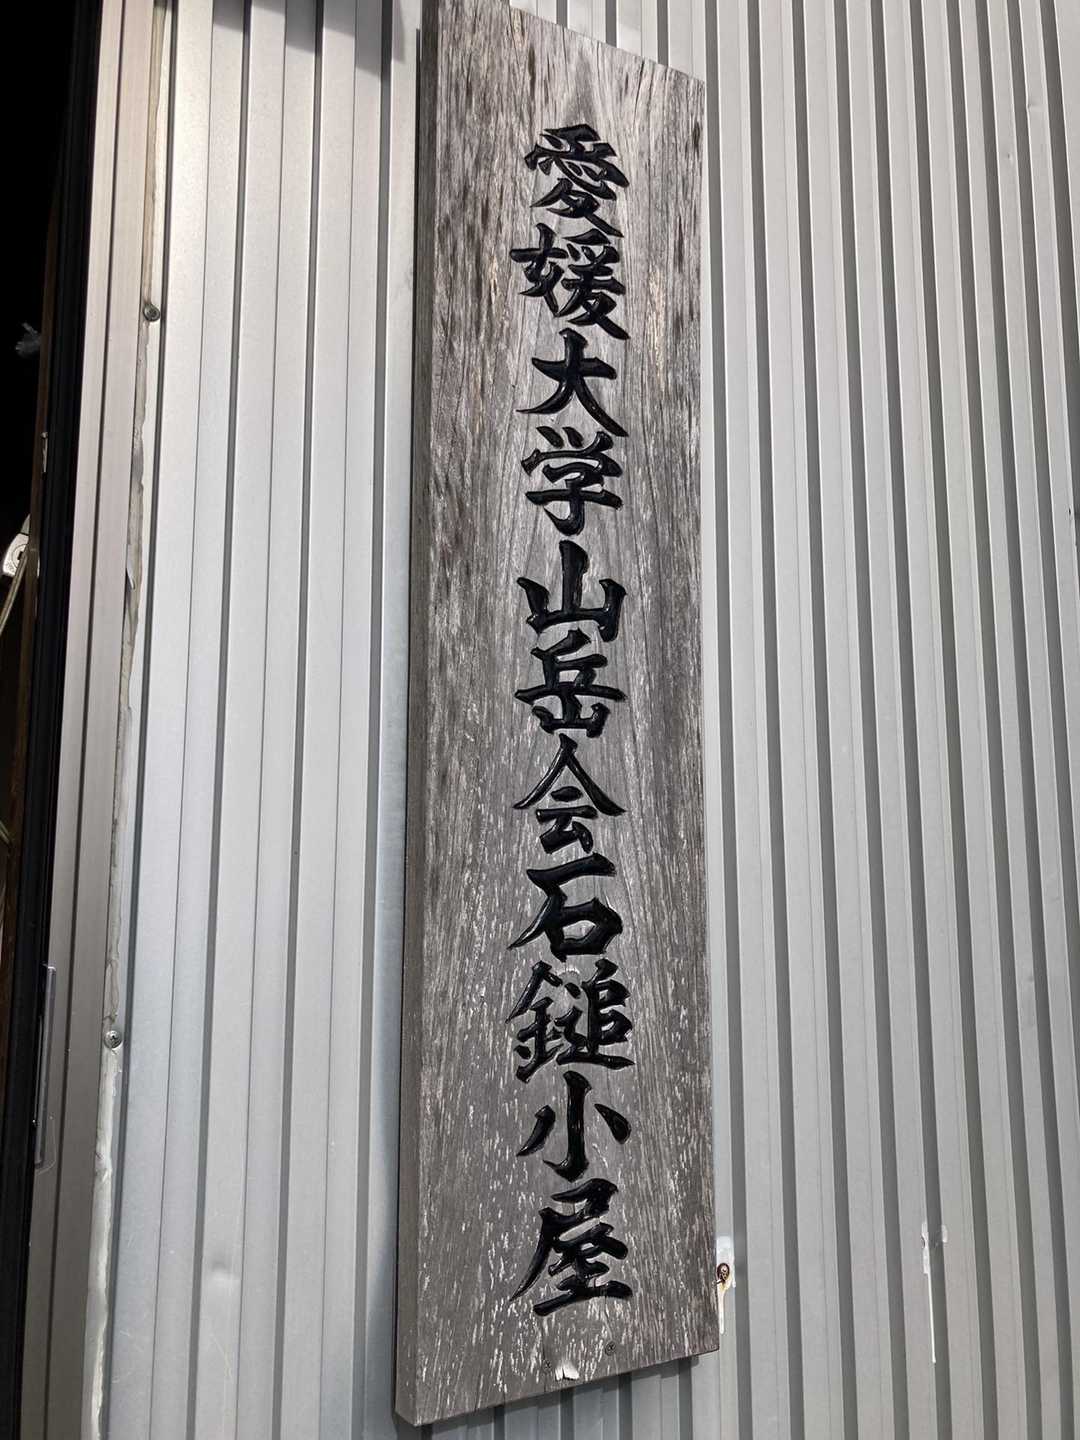 愛媛大学山岳会石鎚小屋